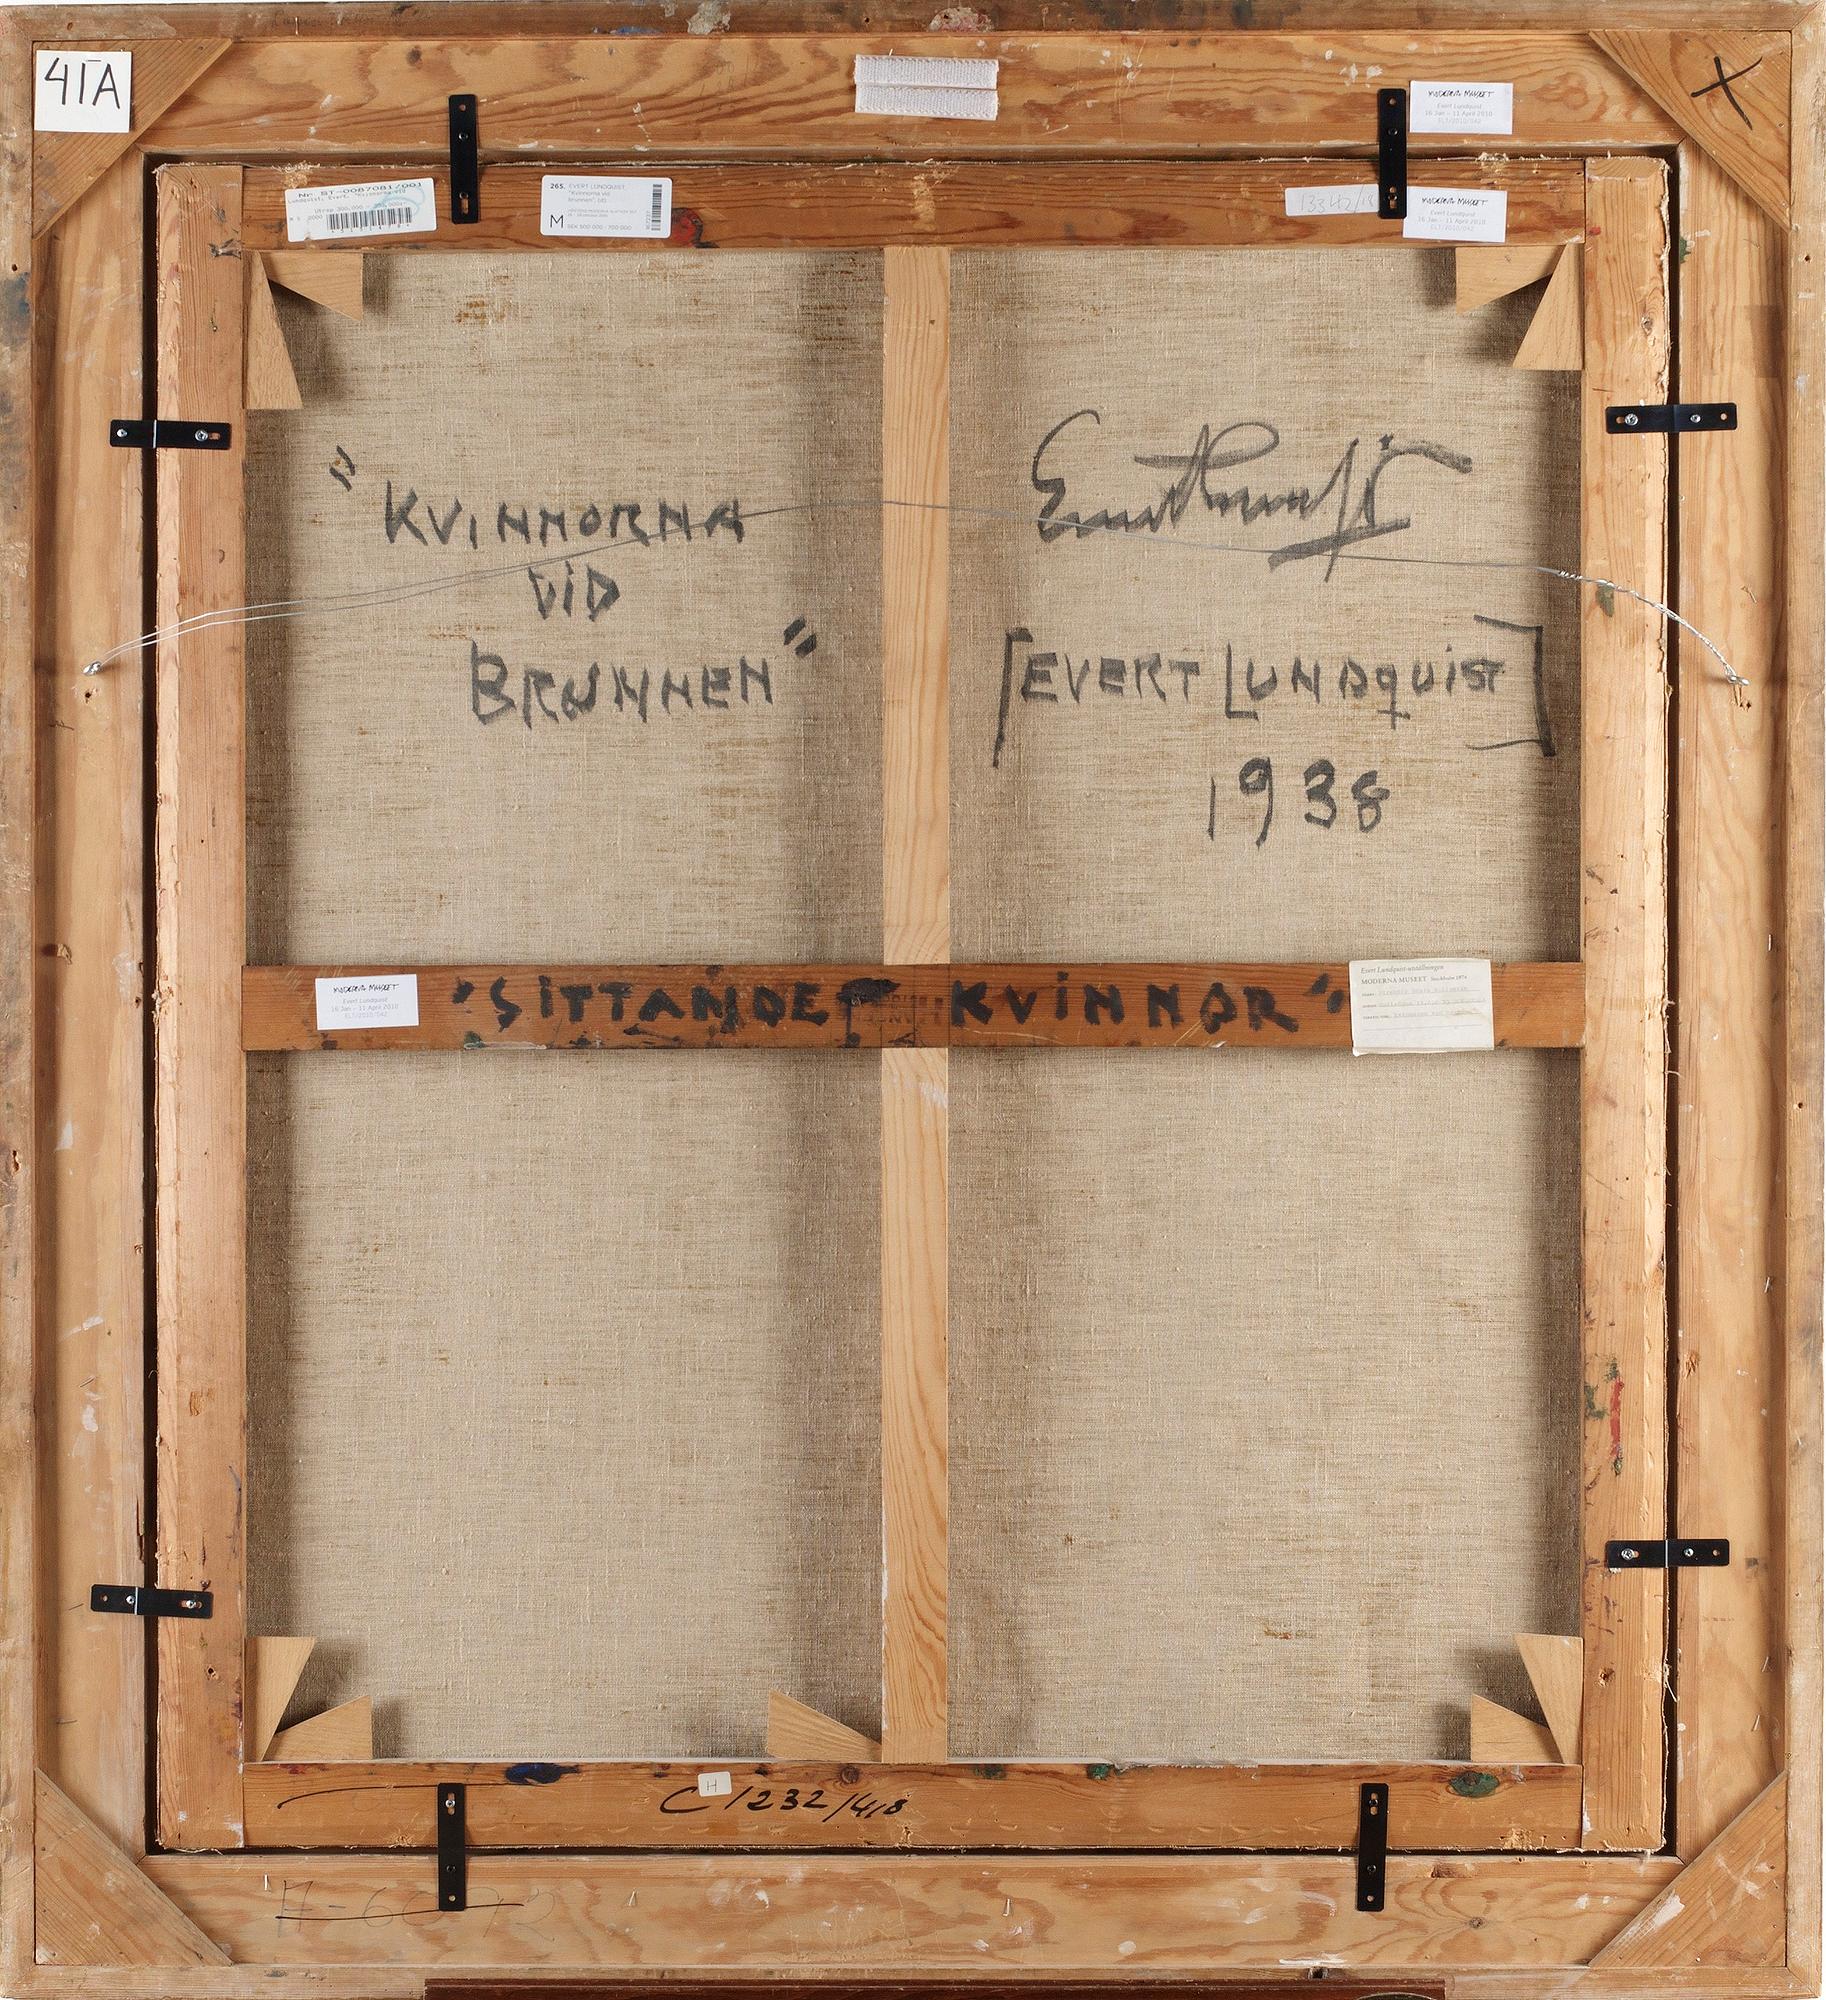 41A
X
MODERNA MUSEET
Evert Lundquist
16 Jan – 11 April 2010
ELT/2010/042
Nr. BT-0087081/001
Lundquist, Evert.
265. EVERT LUNDQUIST,
"Kvinnorna vid
brunnen", (d)
M SEK 500 000 - 700 000
MODERNA MUSEET
Evert Lundquist
16 Jan – 11 April 2010
ELT/2010/042
"KVINNORNA
VID
BRUNNEN"
[EVERT LUNDQUIST]
1938
MODERNA MUSEET
Evert Lundquist
16 Jan – 11 April 2010
ELT/2010/042
"SITTANDE KVINNOR"
Evert Lundquist-utställningen
MODERNA MUSEET Stockholm 1974
H
C 1232/418